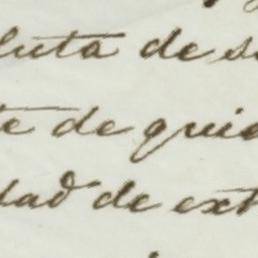 luta de s
te de quie
dad de ext